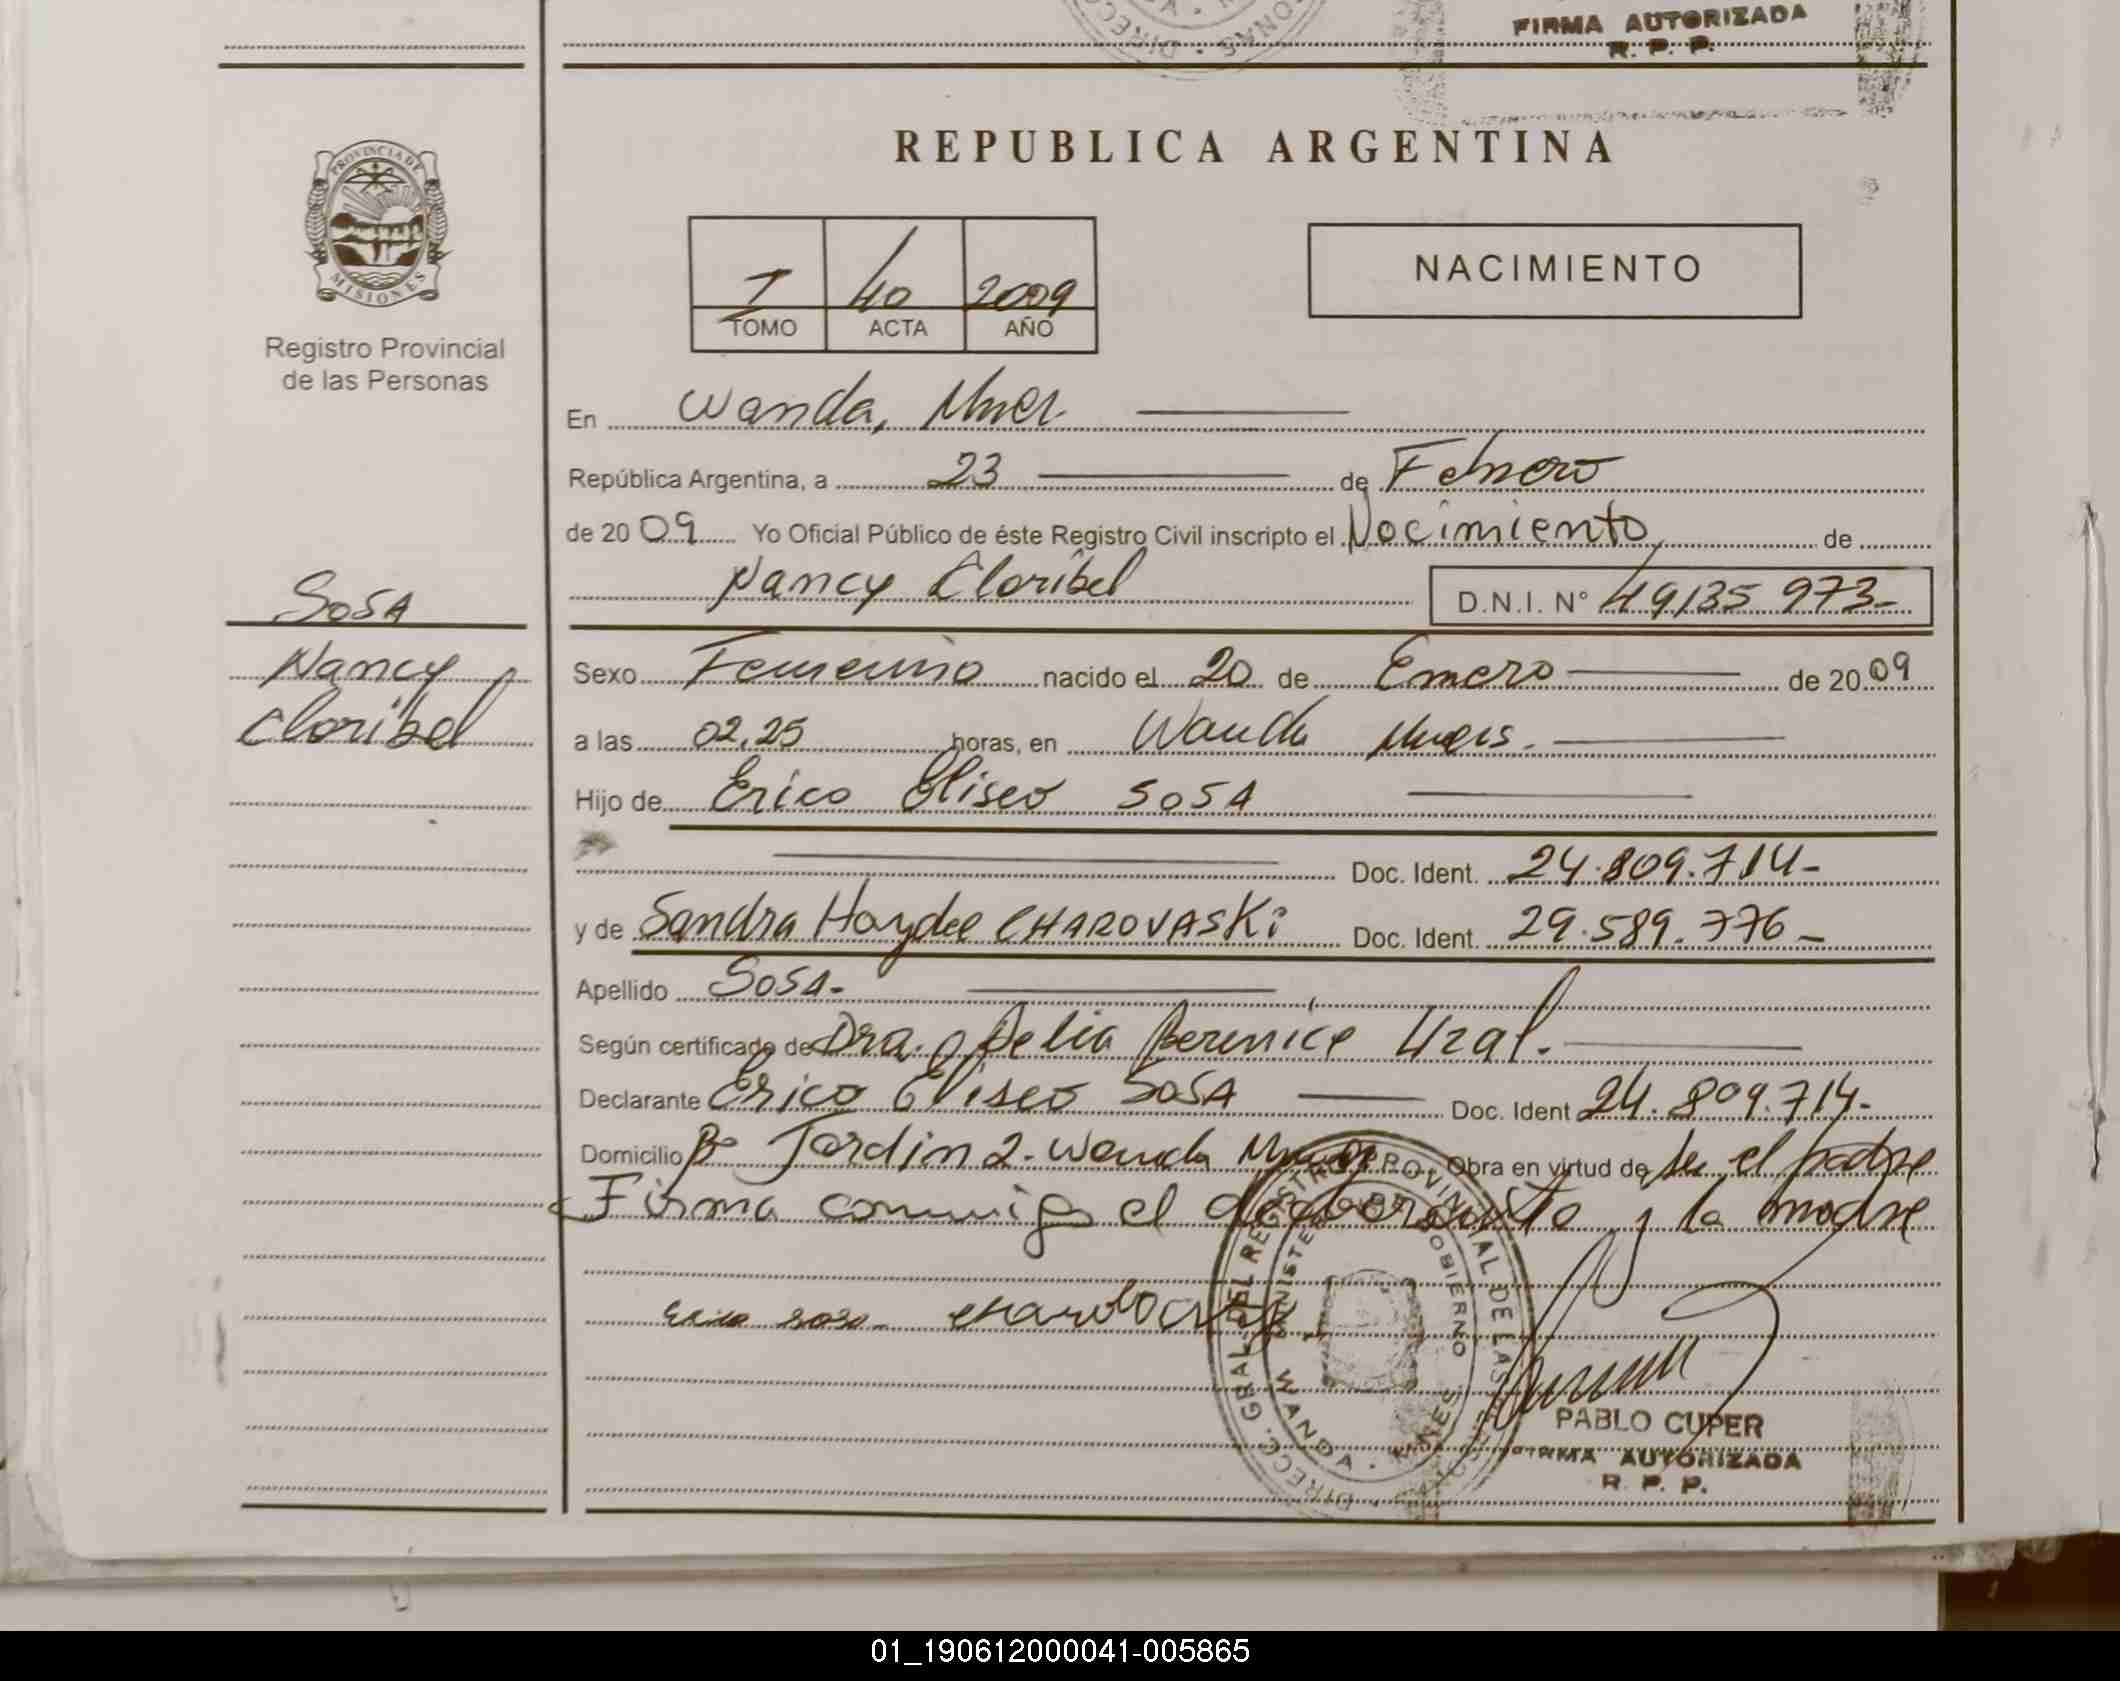 FIRMA AUTORIZADA
R. P. P.
PROVINCIA DE
MISIONES
Registro Provincial
de las Personas
REPUBLICA ARGENTINA
1 40 2009
TOMO ACTA AÑO
NACIMIENTO
En Wanda, Mnes.
República Argentina, a 23 de Febrero
de 2009 Yo Oficial Público de éste Registro Civil inscripto el Nacimiento, de
Nancy Cloribel D.N.I. N° 49135 973-
SOSA
Nancy
Cloribel
Sexo Femenino nacido el 20 de Enero de 2009
a las 02,25 horas, en Wanda Mnes.
Hijo de Erico Eliseo SOSA
Doc. Ident. 24.809.714-
y de Sandra Haydee CHAROVASKi Doc. Ident. 29.589.776-
Apellido SOSA-
Según certificado de Dra. Delia Berenice Uzal.
Declarante Erico Eliseo SOSA Doc. Ident 24.809.714-
Domicilio Bº Jardin 2- Wanda Mnes Obra en virtud de ser el padre
Firma conmigo el declarante y la madre
Erico Sosa
DIRECC. GRAL. DEL REGISTRO PROVINCIAL DE LAS PERSONAS
MINISTERIO DE GOBIERNO
WANDA - MNES.
PABLO CUPER
FIRMA AUTORIZADA
R. P. P.
01_190612000041-005865